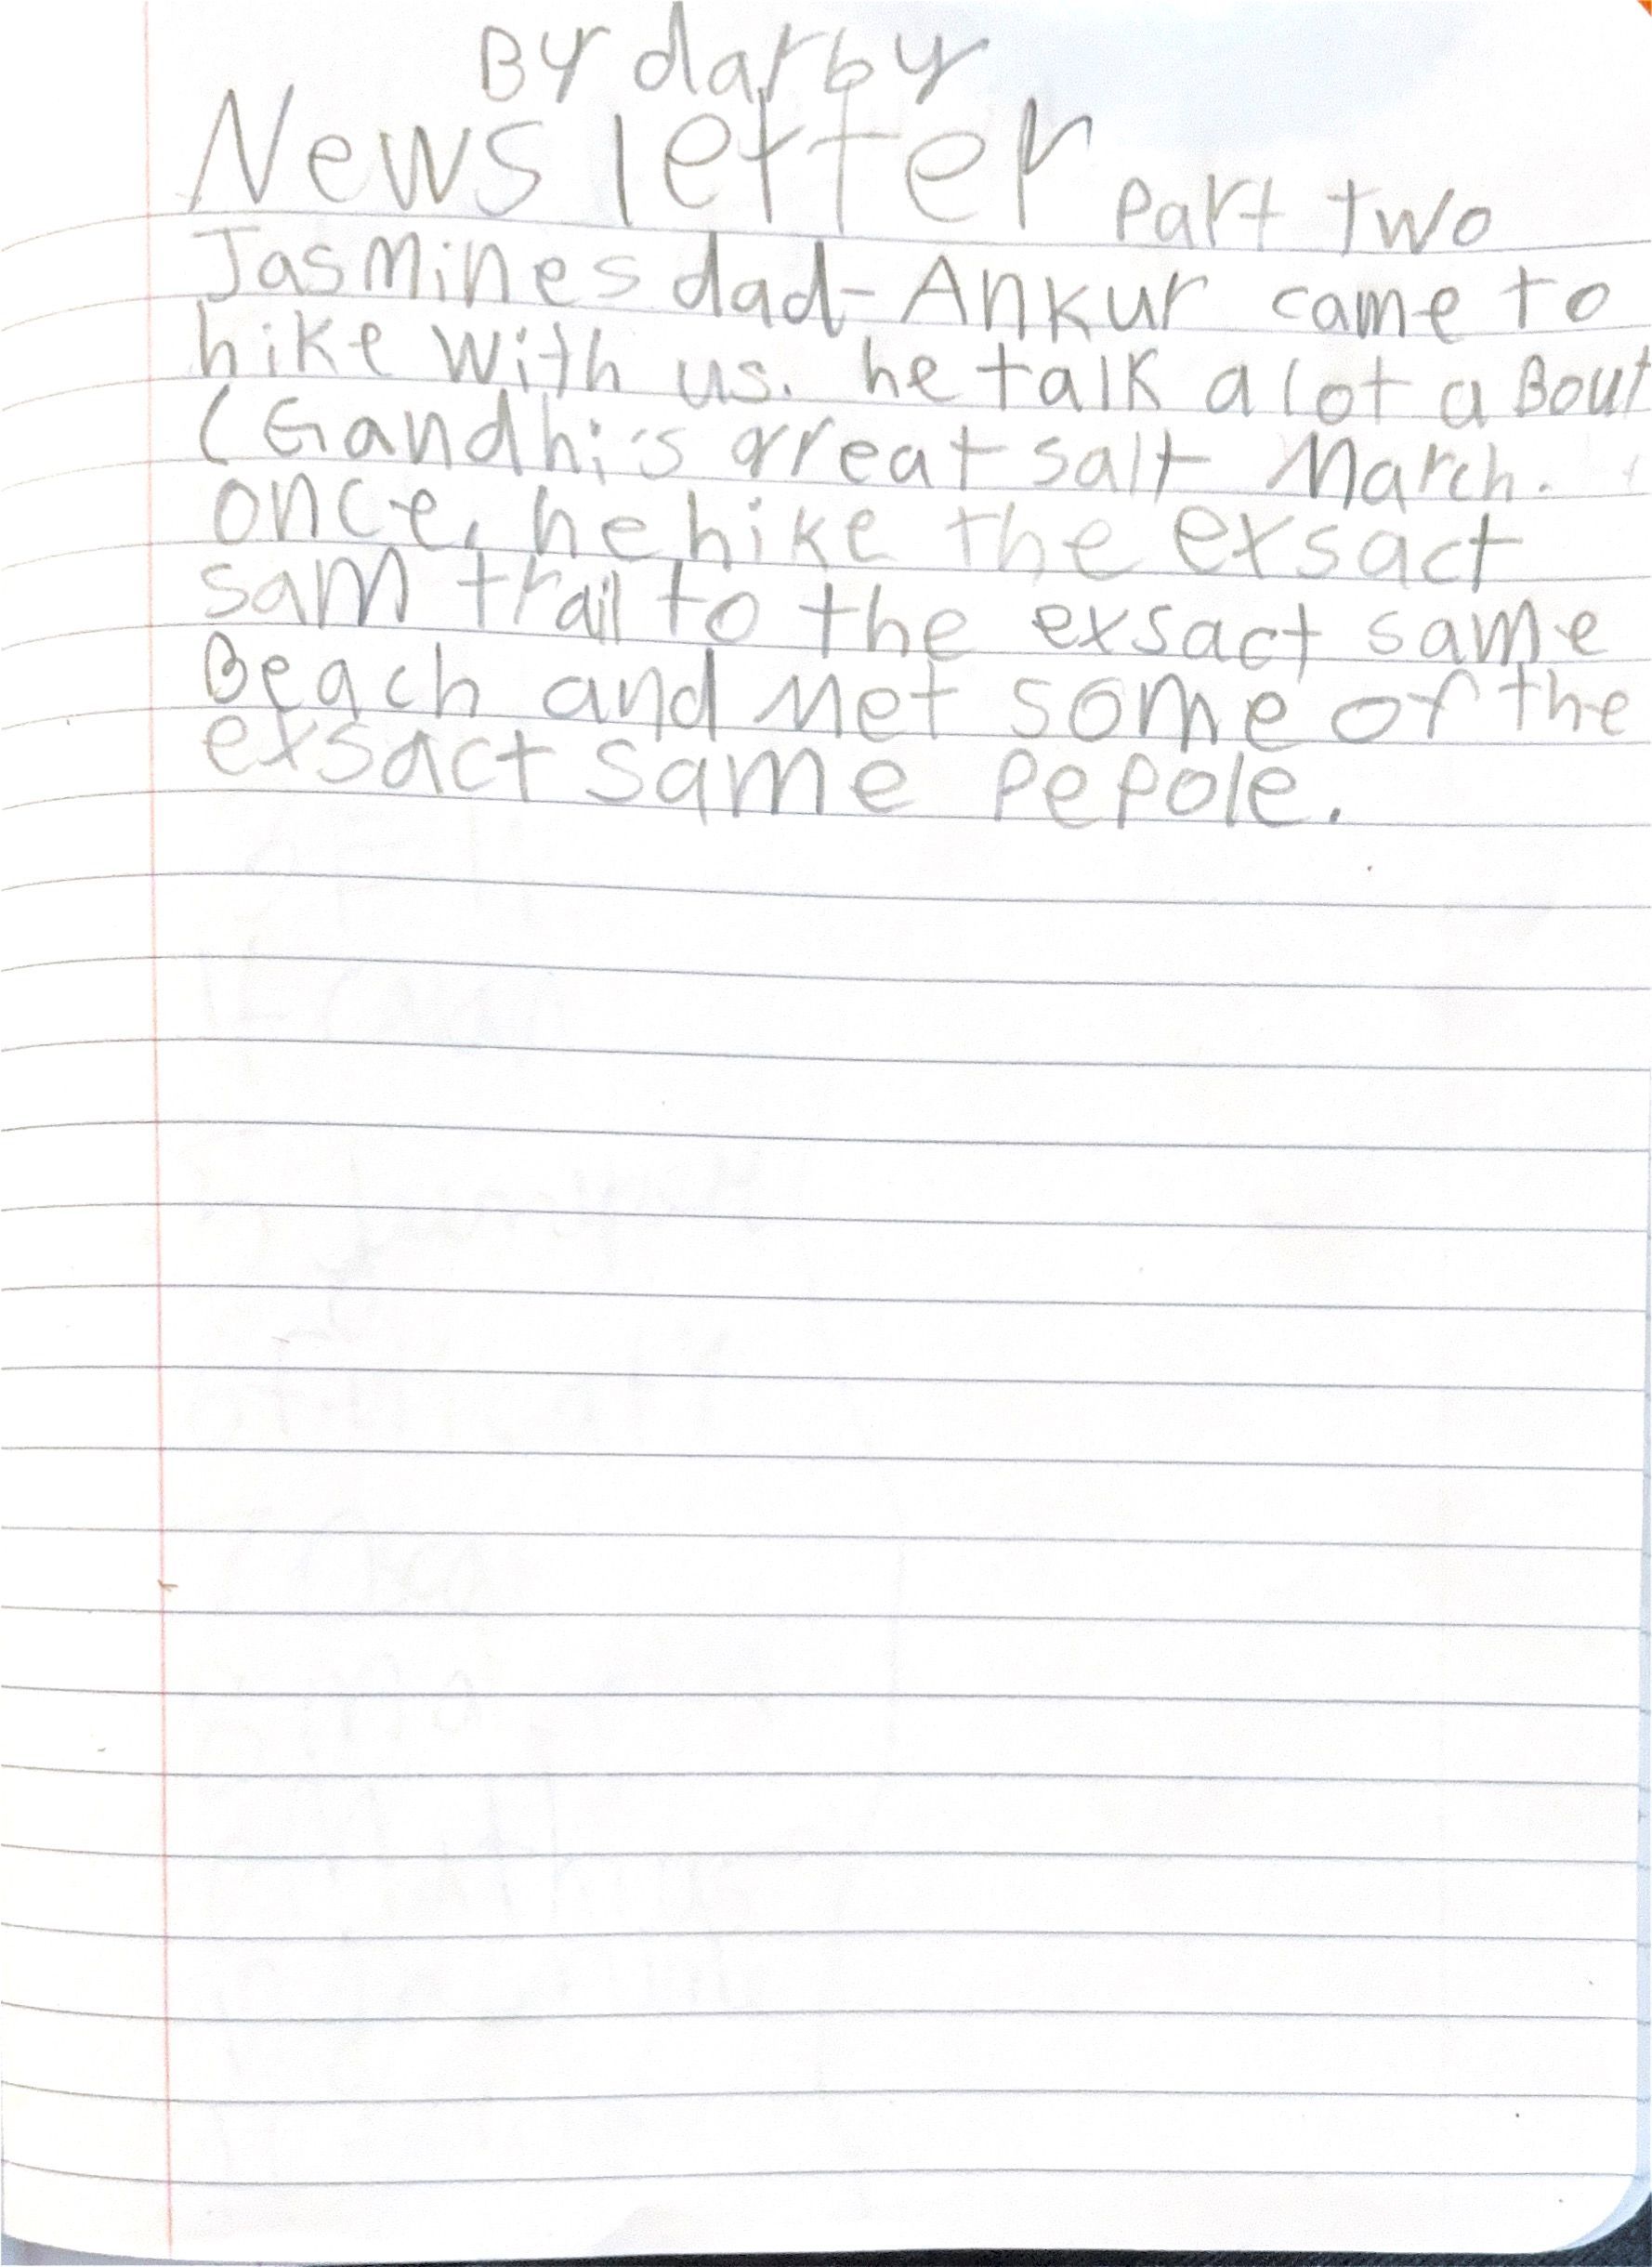 By darby
News letter part two
Jasmines dad-Ankur came to
hike with us. he talk a lot a Bout
(Gandhi's great salt March.
once, he hike the exsact
sam trail to the exsact same
Beach and Met some of the
exsact same pepole.